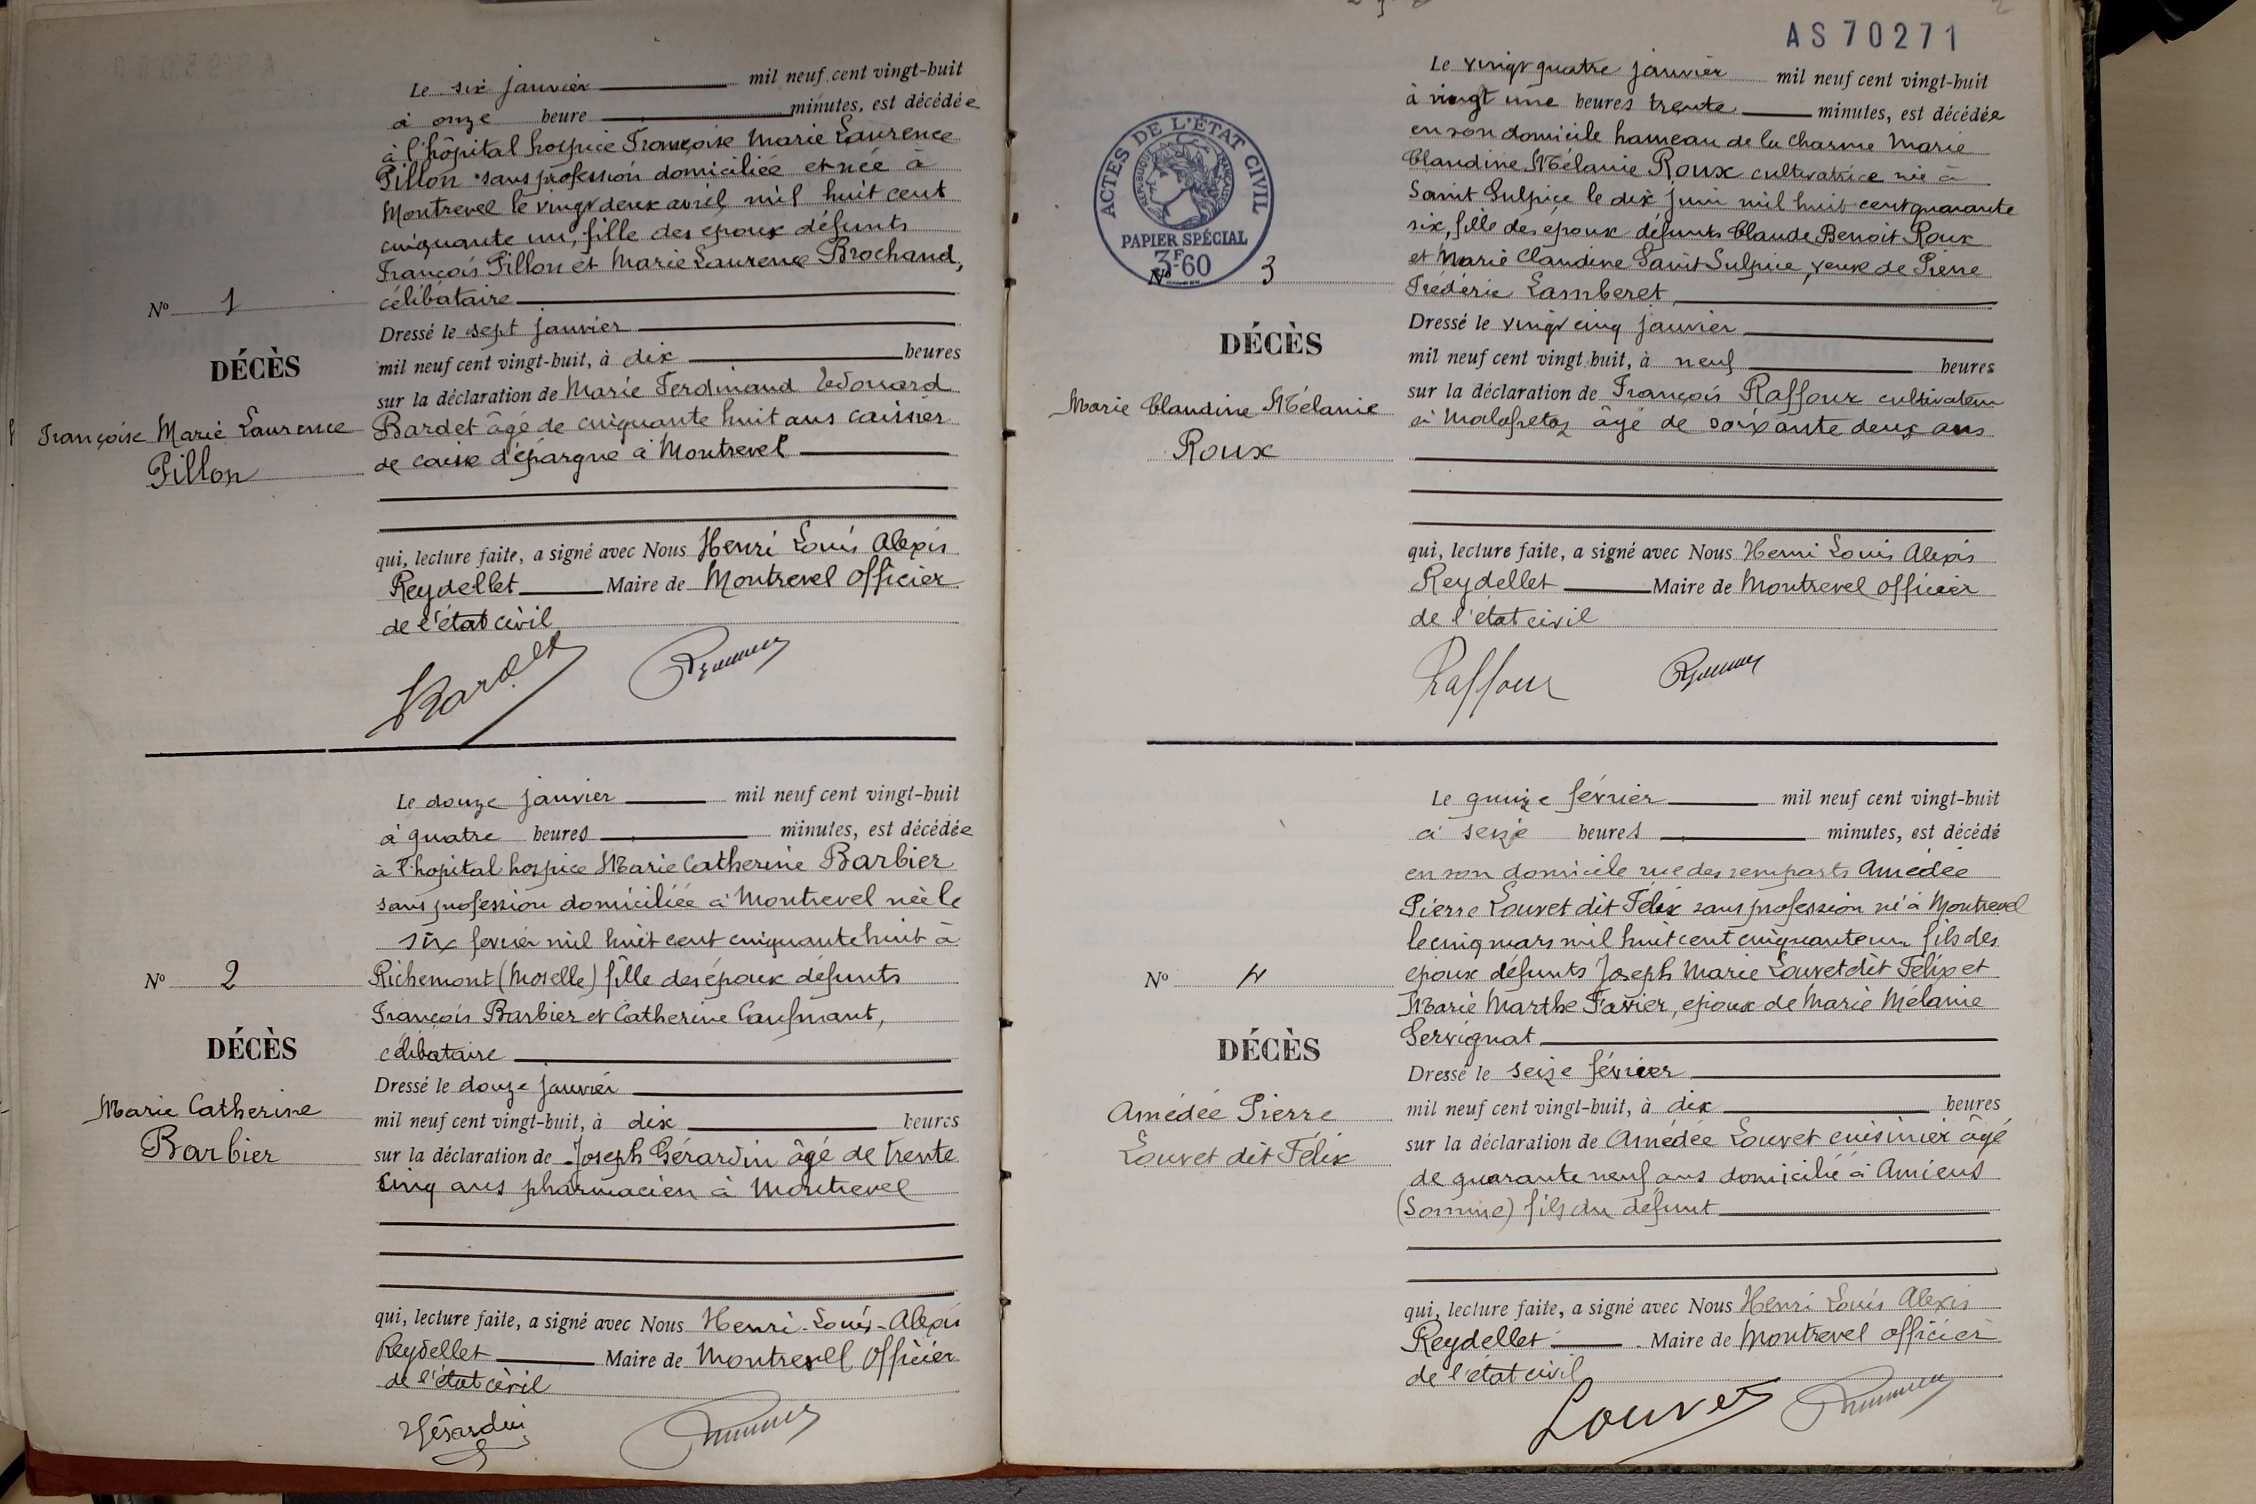 Le six janvier mil neuf cent vingt-huit
à onze heure minutes, est décédée
à l'hôpital hospice Françoise Marie Laurence
Pillon sans profession domiciliée et née à
Montrevel le vingt deux avril mil huit cent
cinquante un, fille des époux défunts
François Pillon et Marie Laurence Brochand,
célibataire
Nº 1
Dressé le sept janvier
DÉCÈS
mil neuf cent vingt-huit, à dix heures
sur la déclaration de Marie Ferdinand Edouard
Françoise Marie Laurence
Pillon
Bardet âgé de cinquante huit ans caissier
de caisse d'épargne à Montrevel
qui, lecture faite, a signé avec Nous Henri Louis Alexis
Reydellet Maire de Montrevel officier
de l'état civil
Bardet
Le douze janvier mil neuf cent vingt-huit
à quatre heures minutes, est décédée
à l'hopital hospice Marie Catherine Barbier
sans profession domiciliée à Montrevel née le
six fevrier mil huit cent cinquante huit à
Nº 2
Richemont (Moselle) fille des époux défunts
François Barbier et Catherine Caufmant,
célibataire
DÉCÈS
Dressé le douze janvier
Marie Catherine
Barbier
mil neuf cent vingt-huit, à dix heures
sur la déclaration de Joseph Gérardin âgé de trente
cinq ans pharmacien à Montrevel
qui, lecture faite, a signé avec Nous Henri-Louis-Alexis
Reydellet Maire de Montrevel officier
de l'état civil
Gérardin
AS70271
ACTES DE L'ÉTAT CIVIL
RÉPUBLIQUE FRANÇAISE
PAPIER SPÉCIAL
3F60
Le vingt quatre janvier mil neuf cent vingt-huit
à vingt une heures trente minutes, est décédée
en son domicile hameau de la Charme Marie
Claudine Mélanie Roux cultivatrice née à
Saint Sulpice le dix juin mil huit cent quarante
six, fille des époux défunts Claude Benoit Roux
et Marie Claudine Saint Sulpice, veuve de Pierre
Frédéric Lamberet
Nº 3
Dressé le vingt cinq janvier
DÉCÈS
mil neuf cent vingt-huit, à neuf heures
sur la déclaration de François Raffour cultivateur
Marie Claudine Mélanie
Roux
à Malafretaz âgé de soixante deux ans
qui, lecture faite, a signé avec Nous Henri Louis Alexis
Reydellet Maire de Montrevel officier
de l'état civil
Raffour
Le quinze février mil neuf cent vingt-huit
à seize heures minutes, est décédé
en son domicile rue des remparts Amédée
Pierre Louvet dit Félix sans profession né à Montrevel
le cinq mars mil huit cent cinquante un fils des
époux défunts Joseph Marie Louvet dit Félix et
Nº 4
Marie Marthe Favier, époux de Marie Mélanie
Servignat
DÉCÈS
Dressé le seize février
Amédée Pierre
Louvet dit Félix
mil neuf cent vingt-huit, à dix heures
sur la déclaration de Amédée Louvet cuisinier âgé
de quarante neuf ans domicilié à Amiens
(Somme) fils du défunt
qui, lecture faite, a signé avec Nous Henri Louis Alexis
Reydellet Maire de Montrevel officier
de l'état civil
Louvet